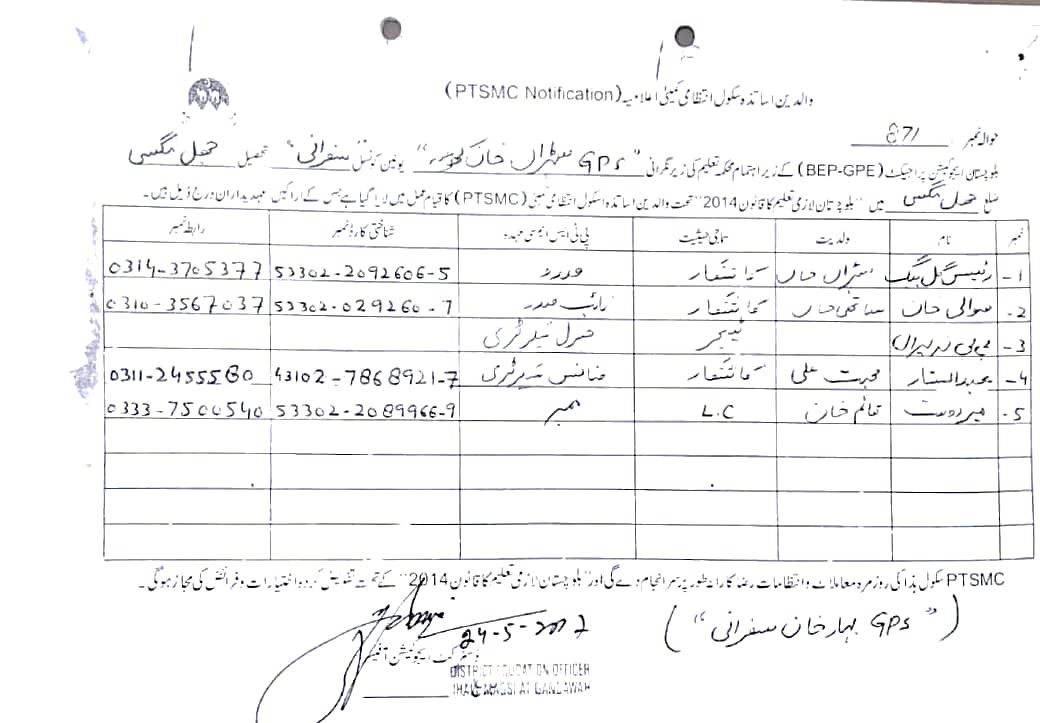 والدین اساتذہ سکول انتظامی کمیٹی اعلامیہ (PTSMC Notification)
حوالہ نمبر 871
بلوچستان ایجوکیشن پراجیکٹ (BEP-GPE) کے زیر اہتمام محکمہ تعلیم کی زیر نگرانی "GPS سہڑاں خان کھوسہ" یونین کونسل "سفرانی" تحصیل جھل مگسی
ضلع جھل مگسی میں "بلوچستان لازمی تعلیم کا قانون 2014" تحت والدین اساتذہ اسکول انتظامی کمیٹی (PTSMC) کا قیام عمل میں لایا گیا ہے جس کے اراکین عہدیداران درج ذیل ہیں۔
نمبر نام ولدیت سماجی حیثیت پی ٹی ایس ایم سی عہدہ شناختی کارڈ نمبر رابطہ نمبر
1- رئیس گل بیگ سہڑاں خاں کاشتکار صدر 53302-2092606-5 0314-3705377
2- سوالی خان کاشتکار نائب صدر 53302-029260-7 0310-3567037
3- بی بی ٹیچر جنرل سیکرٹری
4- عبدالستار محبت علی کاشتکار فنانس سیکرٹری 43102-7868921-7 0311-2455580
5- میر دوست قائم خان L.C ممبر 53302-2089966-9 0333-7500540
PTSMC سکول ہذا کی روزمرہ معاملات و انتظامات رضا کارانہ طور پر سرانجام دے گی اور "بلوچستان لازمی تعلیم کا قانون 2014" کے تحت تفویض کردہ اختیارات و فرائض کی مجاز ہوگی۔
("GPS بہار خان سفرانی")
24-5-2017
ڈسٹرکٹ ایجوکیشن آفیسر
DISTRICT EDUCATION OFFICER
JHAL MAGSI AT GANDAWAH